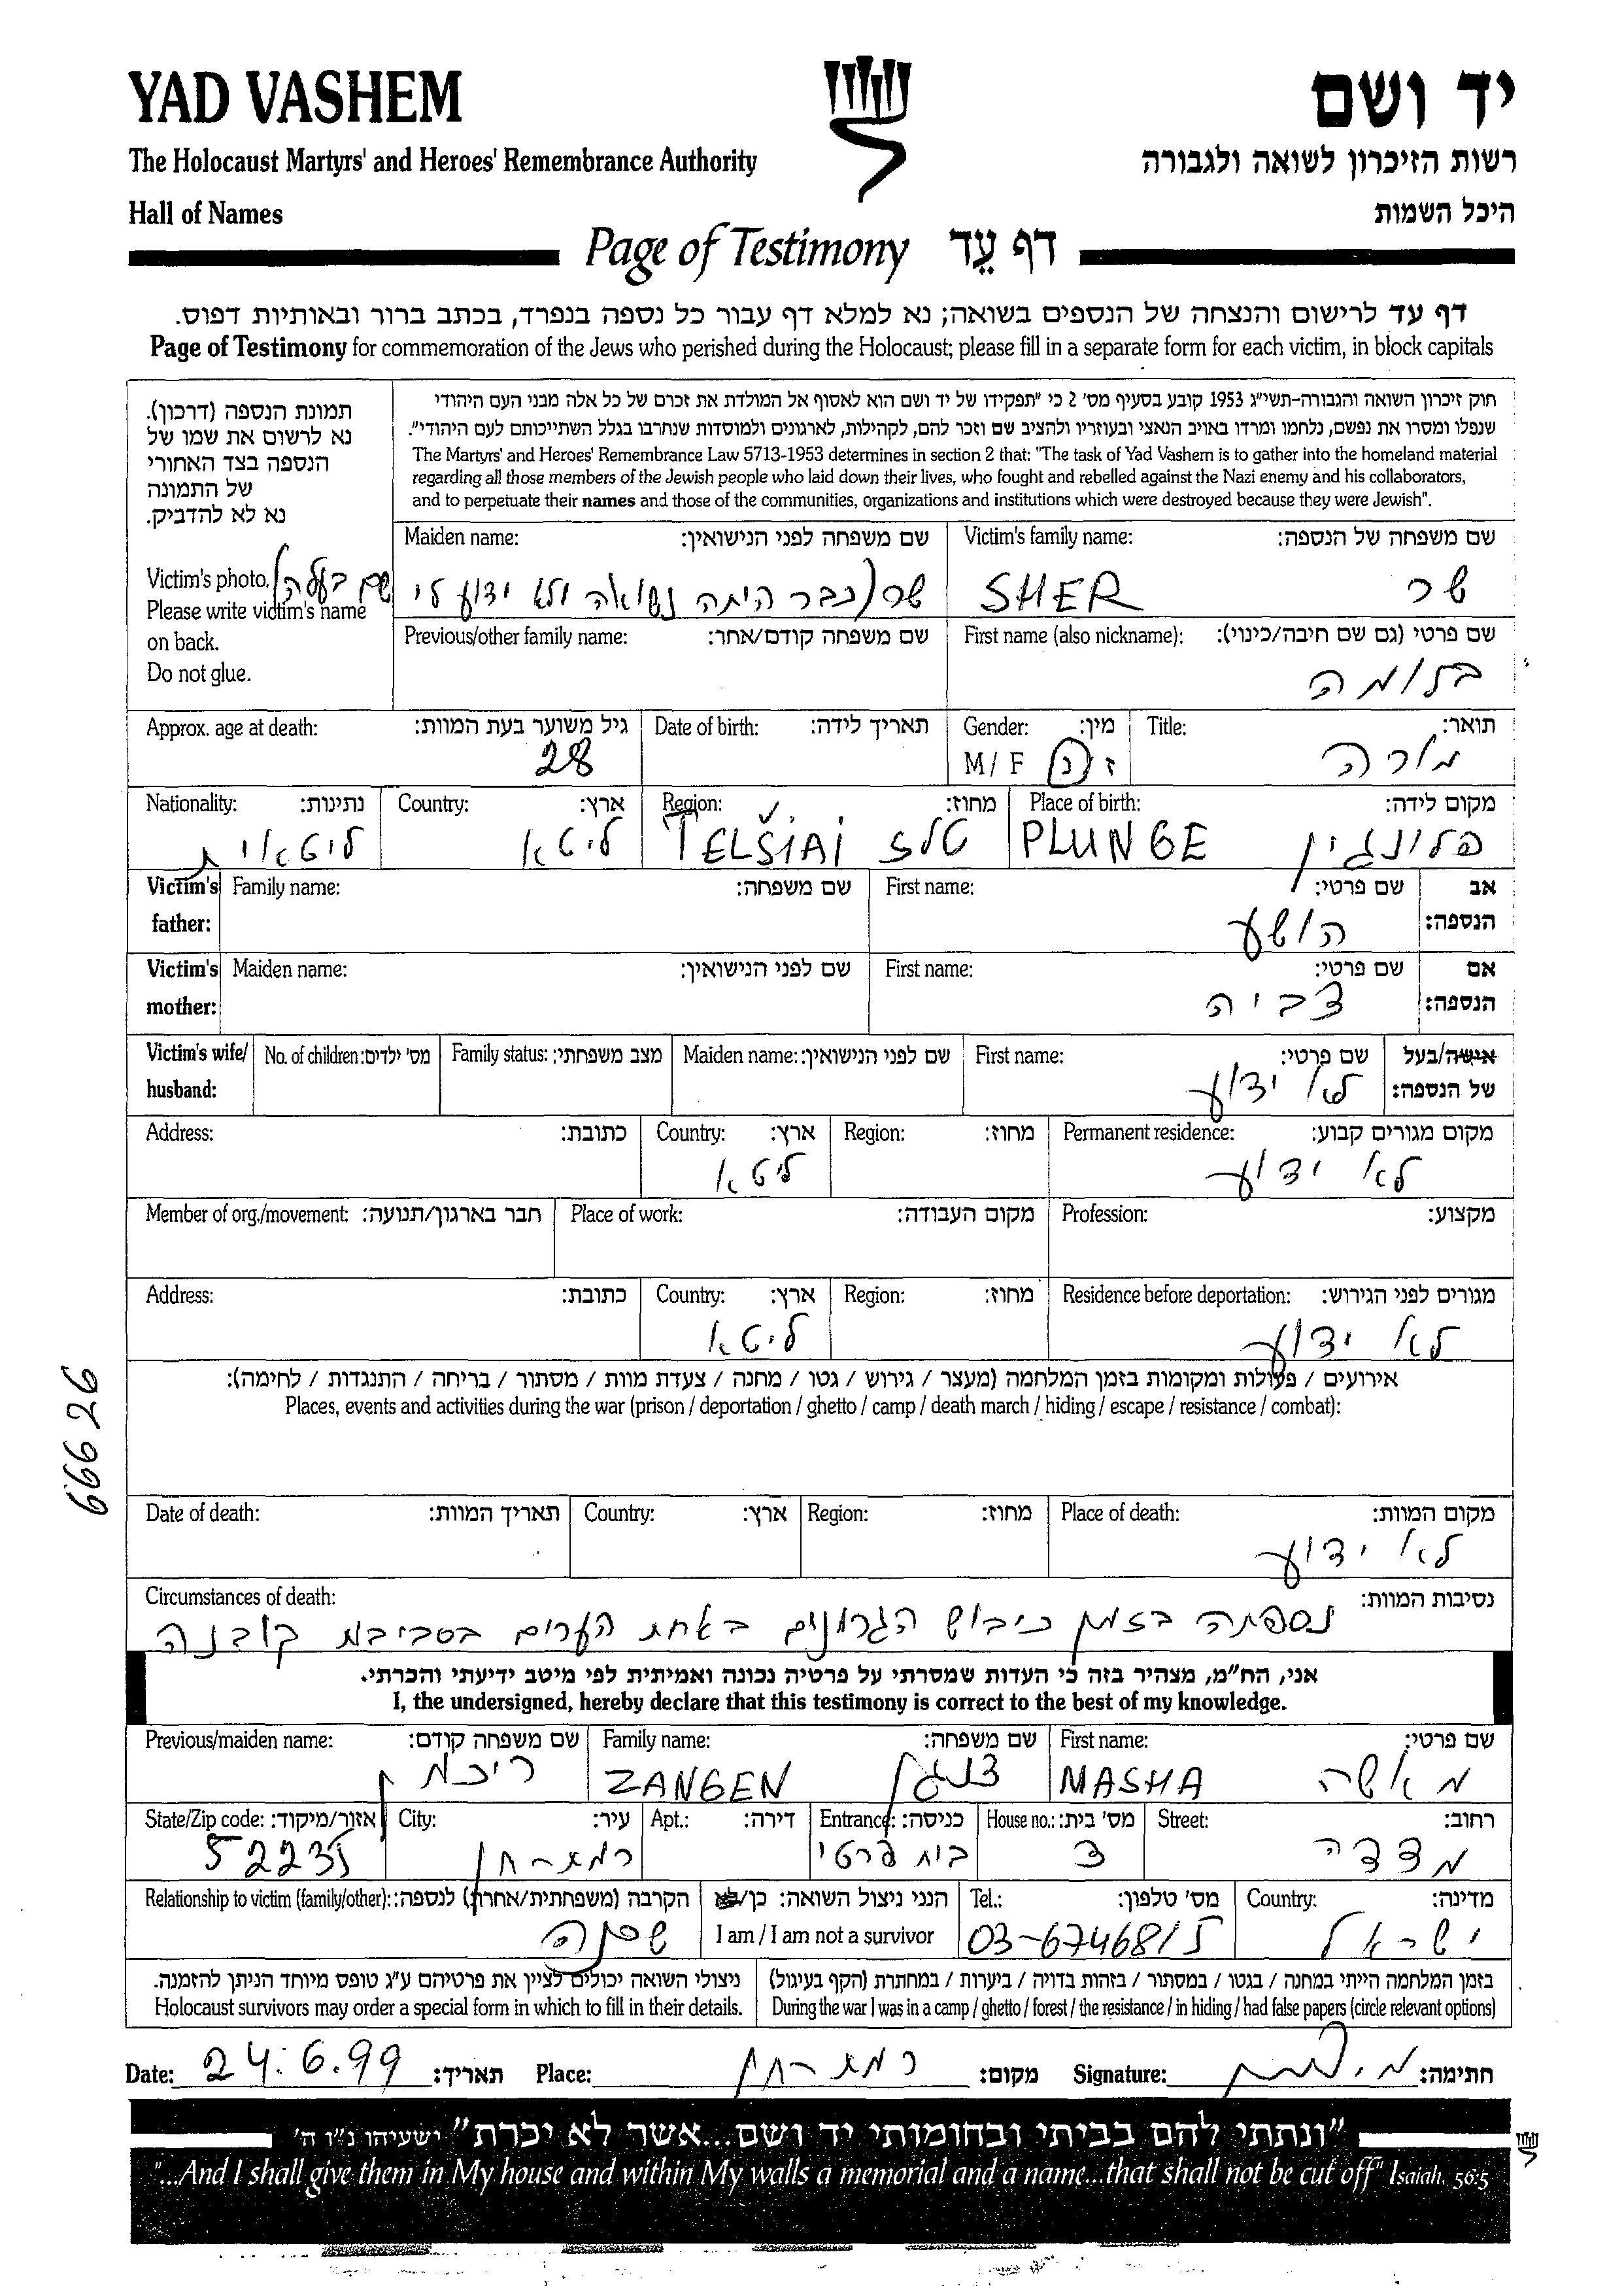 YAD VASHEM
יד ושם
The Holocaust Martyrs' and Heroes' Remembrance Authority
רשות הזיכרון לשואה ולגבורה
Hall of Names
היכל השמות
Page of Testimony דף עֵד
דף עד לרישום והנצחה של הנספים בשואה; נא למלא דף עבור כל נספה בנפרד, בכתב ברור ובאותיות דפוס.
Page of Testimony for commemoration of the Jews who perished during the Holocaust; please fill in a separate form for each victim, in block capitals
תמונת הנספה (דרכון).
נא לרשום את שמו של
הנספה בצד האחורי
של התמונה
נא לא להדביק.
Victim's photo.
Please write victim's name
on back.
Do not glue.
חוק זיכרון השואה והגבורה-תשי״ג 1953 קובע בסעיף מס׳ 2 כי ״תפקידו של יד ושם הוא לאסוף אל המולדת את זכרם של כל אלה מבני העם היהודי
שנפלו ומסרו את נפשם, נלחמו ומרדו באויב הנאצי ובעוזריו ולהציב שם וזכר להם, לקהילות, לארגונים ולמוסדות שנחרבו בגלל השתייכותם לעם היהודי״.
The Martyrs' and Heroes' Remembrance Law 5713-1953 determines in section 2 that: "The task of Yad Vashem is to gather into the homeland material
regarding all those members of the Jewish people who laid down their lives, who fought and rebelled against the Nazi enemy and his collaborators,
and to perpetuate their names and those of the communities, organizations and institutions which were destroyed because they were Jewish".
Victim's family name: שם משפחה של הנספה:
SHER שר
Maiden name: שם משפחה לפני הנישואין:
שר (כבר היתה נשואה ולא ידוע לי שם בעלה)
First name (also nickname): שם פרטי (גם שם חיבה/כינוי):
בלומה
Previous/other family name: שם משפחה קודם/אחר:
Title: תואר:
מורה
Gender: מין:
M / F ז / נ
Date of birth: תאריך לידה:
Approx. age at death: גיל משוער בעת המוות:
28
Place of birth: מקום לידה:
PLUNGE פלונגין
Region: מחוז:
TELŠIAI טלז
Country: ארץ:
ליטא
Nationality: נתינות:
ליטאית
Victim's father: אב הנספה:
First name: שם פרטי:
הושע
Family name: שם משפחה:
Victim's mother: אם הנספה:
First name: שם פרטי:
צביה
Maiden name: שם לפני הנישואין:
Victim's wife/ husband: אישה/בעל של הנספה:
First name: שם פרטי:
לא ידוע
Maiden name: שם לפני הנישואין:
Family status: מצב משפחתי:
No. of children: מס׳ ילדים:
Permanent residence: מקום מגורים קבוע:
לא ידוע
Region: מחוז:
Country: ארץ:
ליטא
Address: כתובת:
Profession: מקצוע:
Place of work: מקום העבודה:
Member of org./movement: חבר בארגון/תנועה:
Residence before deportation: מגורים לפני הגירוש:
לא ידוע
Region: מחוז:
Country: ארץ:
ליטא
Address: כתובת:
אירועים / פעולות ומקומות בזמן המלחמה (מעצר / גירוש / גטו / מחנה / צעדת מוות / מסתור / בריחה / התנגדות / לחימה):
Places, events and activities during the war (prison / deportation / ghetto / camp / death march / hiding / escape / resistance / combat):
66626
Place of death: מקום המוות:
לא ידוע
Region: מחוז:
Country: ארץ:
Date of death: תאריך המוות:
Circumstances of death: נסיבות המוות:
נספתה בזמן כיבוש הגרמנים באחת הערים בסביבת קובנה
אני, הח״מ, מצהיר בזה כי העדות שמסרתי על פרטיה נכונה ואמיתית לפי מיטב ידיעתי והכרתי.
I, the undersigned, hereby declare that this testimony is correct to the best of my knowledge.
First name: שם פרטי:
MASHA מאשה
Family name: שם משפחה:
ZANGEN צנגן
Previous/maiden name: שם משפחה קודם:
ריכמן
Street: רחוב:
מצדה
House no.: מס׳ בית:
3
Entrance: כניסה:
בית פרטי
Apt.: דירה:
City: עיר:
רמת-חן
State/Zip code: אזור/מיקוד:
52235
Country: מדינה:
ישראל
Tel.: מס׳ טלפון:
03-6746815
הנני ניצול השואה: כן/לא
I am / I am not a survivor
Relationship to victim (family/other): הקרבה (משפחתית/אחרת) לנספה:
שכנה
בזמן המלחמה הייתי במחנה / בגטו / במסתור / בזהות בדויה / ביערות / במחתרת (הקף בעיגול)
During the war I was in a camp / ghetto / forest / the resistance / in hiding / had false papers (circle relevant options)
ניצולי השואה יכולים לציין את פרטיהם ע״ג טופס מיוחד הניתן להזמנה.
Holocaust survivors may order a special form in which to fill in their details.
Date: 24.6.99 תאריך: Place: רמת-חן מקום: Signature: חתימה:
״ונתתי להם בביתי ובחומותי יד ושם...אשר לא יכרת״ ישעיהו נ״ו ה׳
"...And I shall give them in My house and within My walls a memorial and a name...that shall not be cut off" Isaiah, 56:5